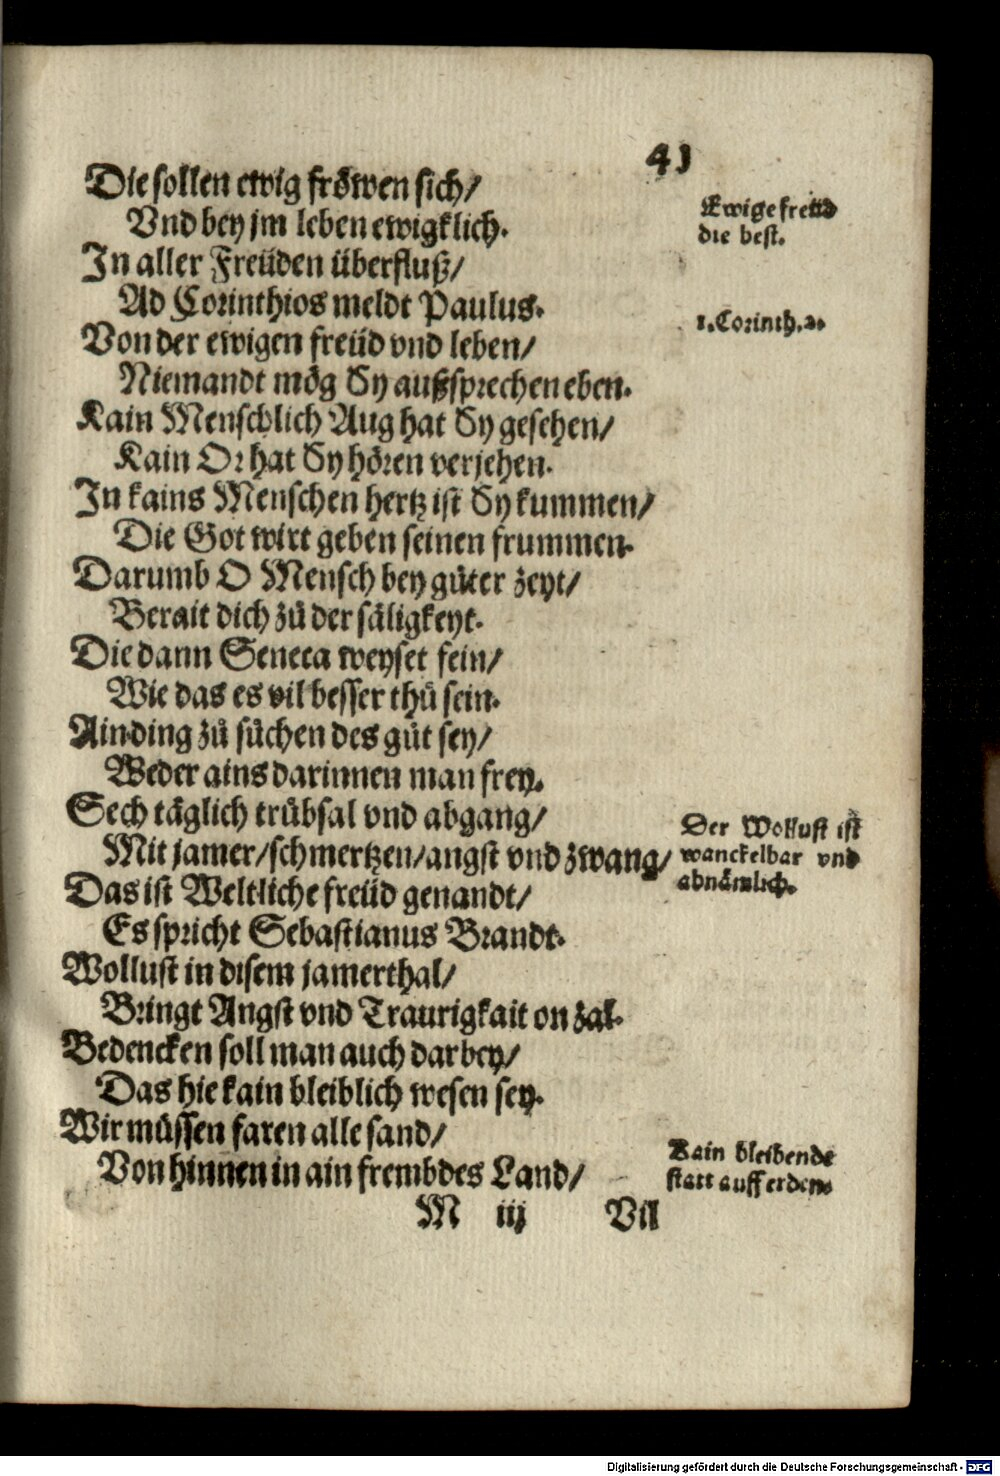 41
Die sollen ewig fröwen sich/
Vnd bey jm leben ewigklich.
Ewige freüd
die best.
In aller Freüden überfluß/
Ad Corinthios meldt Paulus.
1. Corinth. 2.
Von der ewigen freüd vnd leben/
Niemandt mög Sy außsprechen eben.
Kain Menschlich Aug hat Sy gesehen/
Kain Or hat Sy hören verjehen.
In kains Menschen hertz ist Sy kummen/
Die Got wirt geben seinen frummen.
Darumb O Mensch bey gůter zeyt/
Berait dich zů der säligkeyt.
Die dann Seneca weyset fein/
Wie das es vil besser thů sein.
Ain ding zů sůchen des gůt sey/
Weder ains darinnen man frey.
Sech täglich trübsal vnd abgang/
Mit jamer/schmertzen/angst vnd zwang/
Der Wollust ist
wanckelbar vnd
abnämlich.
Das ist Weltliche freüd genandt/
Es spricht Sebastianus Brandt.
Wollust in disem jamerthal/
Bringt Angst vnd Traurigkait on zal.
Bedencken soll man auch darbey/
Das hie kain bleiblich wesen sey.
Wir müssen faren alle sand/
Von hinnen in ain frembdes Land/
Kain bleibende
statt auff erden.
M iij Vil
Digitalisierung gefördert durch die Deutsche Forschungsgemeinschaft - DFG